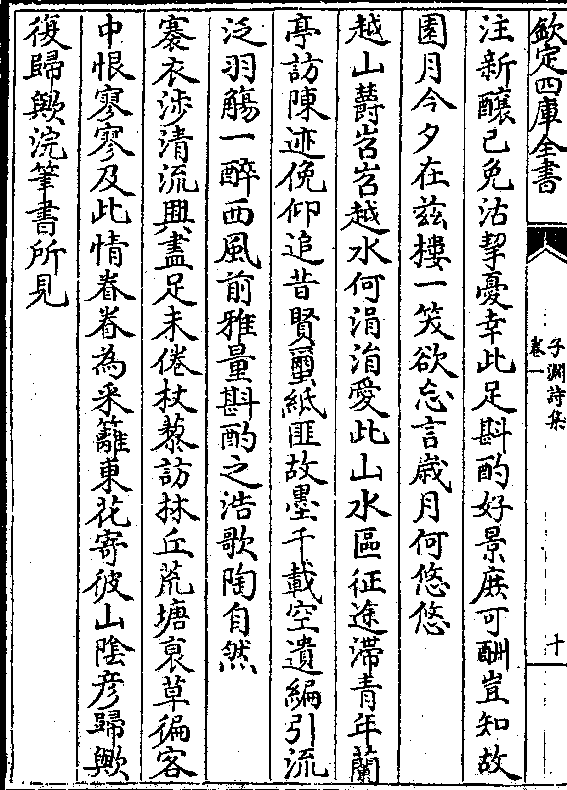 欽定四庫全書
子淵詩集
卷一
十
注新釀已免沽挈憂幸此足斟酌好景庶可酬豈知故
園月今夕在兹樓一笑欲忘言歳月何悠悠
越山欝岧岧越水何涓涓愛此山水區征途滯青年蘭
亭訪陳迹俛仰追昔賢蠒紙匪故墨千載空遺編引流
泛羽觴一醉西風前雅量斟酌之浩歌陶自然
褰衣涉清流興盡足未倦杖藜訪林丘荒塘裒草徧客
中恨寥寥及此情眷眷為采籬東花寄彼山陰彦歸歟
復歸歟浣筆書所見